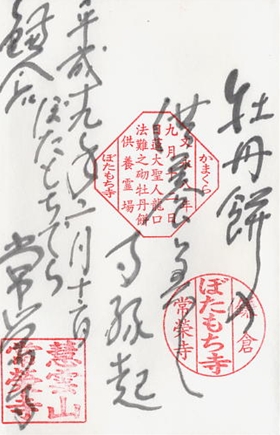 牡丹餅の
供養
かまくら
文永八年
九月十二日
日蓮大聖人龍口
法難之砌牡丹餅
供養霊場
ぼたもち寺
平成十九年二月十六日
鎌倉
ぼたもちでら
常栄寺
鎌倉
ぼたもち寺
常栄寺
慧雲山
常栄寺